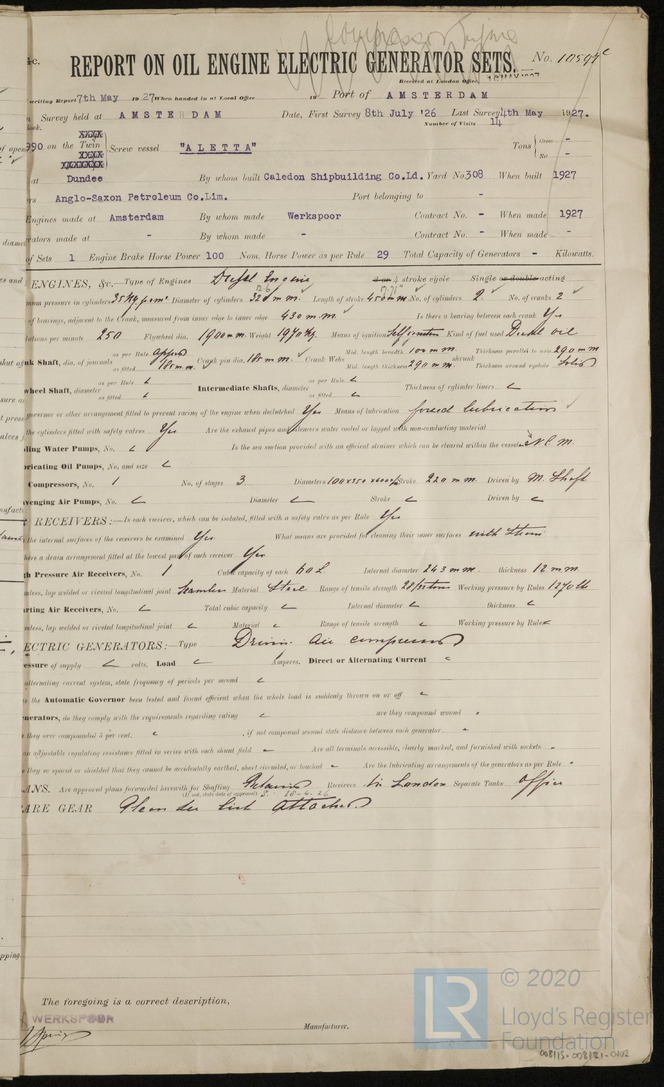 &c.
Compressor Engine
REPORT ON OIL ENGINE ELECTRIC GENERATOR SETS. No.
Received at London Office
writing Report 7th May 1927 When handed in at Local Office 19 Port of AMSTERDAM
Survey held at AMSTERDAM Date, First Survey 8th July '26 Last Survey 4th May 1927.
Book. Number of Visits 14
990 on the Twin Screw vessel "ALETTA" Tons { Gross -
Net -
at Dundee By whom built Caledon Shipbuilding Co.Ld. Yard No 308 When built 1927
Anglo-Saxon Petroleum Co.Lim. Port belonging to -
Engines made at Amsterdam By whom made Werkspoor Contract No. - When made 1927
rators made at - By whom made - Contract No. - When made -
of Sets 1 Engine Brake Horse Power 100 Nom. Horse Power as per Rule 29 Total Capacity of Generators - Kilowatts.
ENGINES, &c. Type of Engines Diesel Engine 2 or 4 stroke cycle Single or double acting
pressure in cylinders Diameter of cylinders 320 m.m. Length of stroke 450 m.m. No. of cylinders 2 No. of cranks 2
of bearings, adjacent to the Crank, measured from inner edge to inner edge 430 m.m. Is there a bearing between each crank Yes
utions per minute 250 Flywheel dia. 1900 m.m. Weight 1970 Kg. Means of ignition Kind of fuel used Diesel oil
nk Shaft, dia. of journals as per Rule as fitted 185 m.m. Crank pin dia. 185 m.m. Crank Webs Mid. length breadth Mid. length thickness shrunk Thickness parallel to axis 290 m.m. Thickness around eyehole Solid
wheel Shaft, diameter as per Rule as fitted Intermediate Shafts, diameter as per Rule as fitted Thickness of cylinder liners
governor or other arrangement fitted to prevent racing of the engine when declutched Yes Means of lubrication forced lubrication
the cylinders fitted with safety valves Yes Are the exhaust pipes and silencers water cooled or lagged with non-conducting material
ling Water Pumps, No. Is the sea suction provided with an efficient strainer which can be cleared within the vessel
ricating Oil Pumps, No. and size
Compressors, No. 1 No. of stages 3 Diameters Stroke 220 m.m. Driven by M. Shaft
venging Air Pumps, No. Diameter Stroke Driven by
RECEIVERS:—Is each receiver, which can be isolated, fitted with a safety valve as per Rule Yes
the internal surfaces of the receivers be examined Yes What means are provided for cleaning their inner surfaces with steam
here a drain arrangement fitted at the lowest part of each receiver Yes
h Pressure Air Receivers, No. 1 Cubic capacity of each Internal diameter 243 m.m. thickness 12 m.m.
mless, lap welded or riveted longitudinal joint Seamless Material Steel Range of tensile strength Working pressure by Rules 1270 lb
rting Air Receivers, No. Total cubic capacity Internal diameter thickness
mless, lap welded or riveted longitudinal joint Material Range of tensile strength Working pressure by Rules
ECTRIC GENERATORS:—Type Driving air compressor
essure of supply volts. Load Amperes. Direct or Alternating Current
alternating current system, state frequency of periods per second
the Automatic Governor been tested and found efficient when the whole load is suddenly thrown on or off
nerators, do they comply with the requirements regarding rating are they compound wound
they over compounded 5 per cent. , if not compound wound state distance between each generator
an adjustable regulating resistance fitted in series with each shunt field Are all terminals accessible, clearly marked, and furnished with sockets
they so spaced or shielded that they cannot be accidentally earthed, short circuited, or touched Are the lubricating arrangements of the generators as per Rule
ANS. Are approved plans forwarded herewith for Shafting Retained Receivers in London Separate Tanks Office
(If not, state date of approval)
ARE GEAR Please see list attached
The foregoing is a correct description,
WERKSPOOR
Manufacturer.
LR
© 2020
Lloyd's Register
Foundation
008115-008121-0102